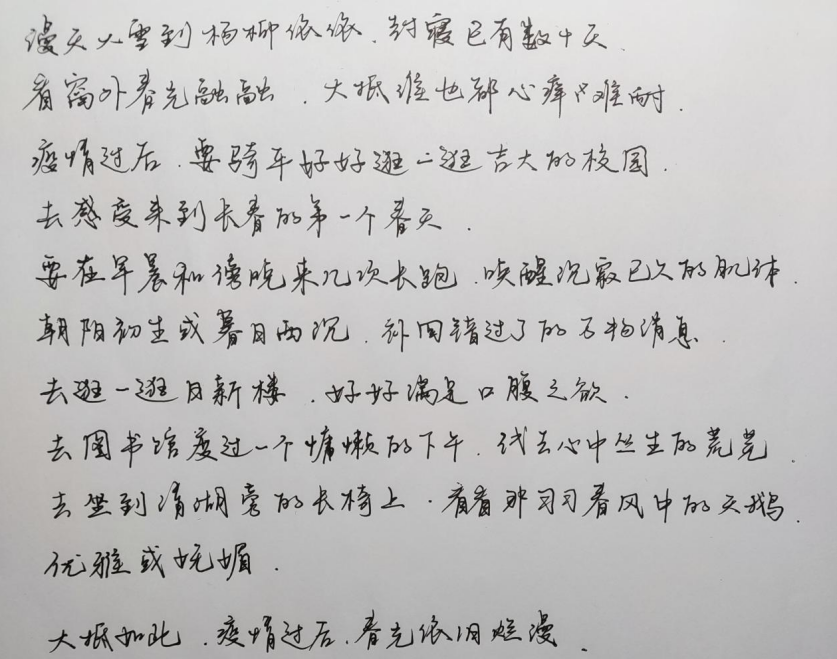 漫天大雪到杨柳依依，封寝已有数十天．
看窗外春光融融，大抵谁也都心痒难耐．
疫情过后，要骑车好好逛一逛吉大的校园．
去感受来到长春的第一个春天．
要在早晨和傍晚来几次长跑，唤醒沉寂已久的肌体．
朝阳初生或暮日西沉，补回错过了的万物消息．
去逛一逛日新楼，好好满足口腹之欲．
去图书馆度过一个慵懒的下午，伐去心中丛生的荒芜．
去坐到清湖旁的长椅上，看看那习习春风中的天鹅．
优雅或妩媚．
大抵如此，疫情过后，春光依旧烂漫．